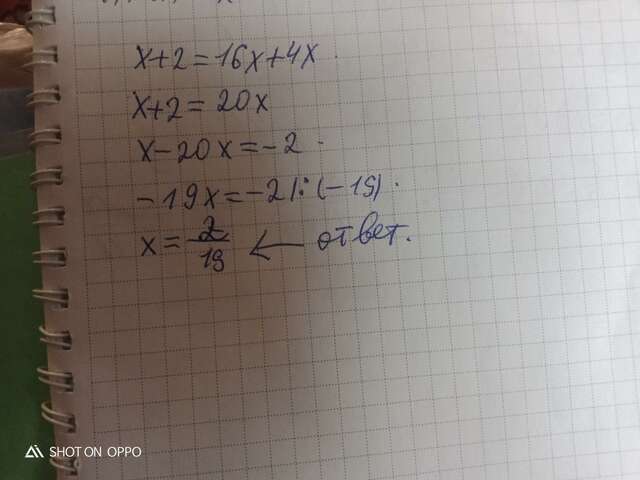 x+2=16x+4x.
x+2=20x
x-20x=-2.
-19x=-2|:(-19).
x=2/19 ← ответ.
SHOT ON OPPO